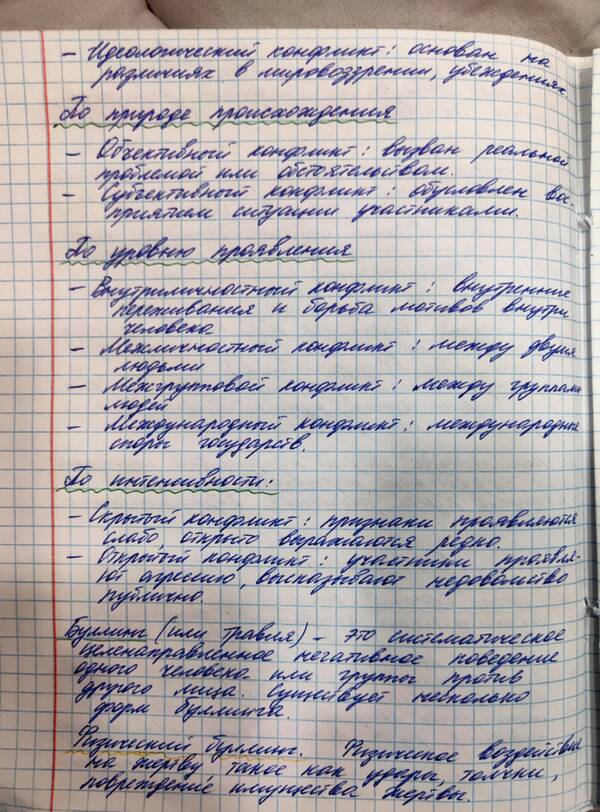 - Идеологический конфликт: основан на
различиях в мировоззрении, убеждениях
По природе происхождения
- Объективный конфликт: вызван реальной
проблемой или обстоятельствам.
- Субъективный конфликт: обусловлен вос-
приятием ситуации участниками.
По уровню проявления
- Внутриличностный конфликт: внутренние
переживания и борьба мотивов внутри
человека
- Межличностный конфликт: между двумя
людьми
- Межгрупповой конфликт: между группами
людей
- Международный конфликт: международные
споры государств.
По интенсивности:
- Скрытый конфликт: признаки проявляются
слабо, открыто выражаются редко.
- Открытый конфликт: участники проявля-
ют агрессию, высказывают недовольство
публично.
Буллинг (или травля) - это систематическое
целенаправленное негативное поведение
одного человека или группы против
другого лица. Существует несколько
форм буллинга.
Физический буллинг. Физичское воздействие
на жертву такое как удары, толчки,
повреждение имущества жертвы.